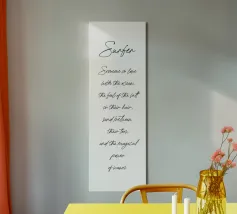 Surfer
Someone in love
with the ocean,
the feel of the salt
in their hair,
sand between
their toes
and the magical
power
of waves.